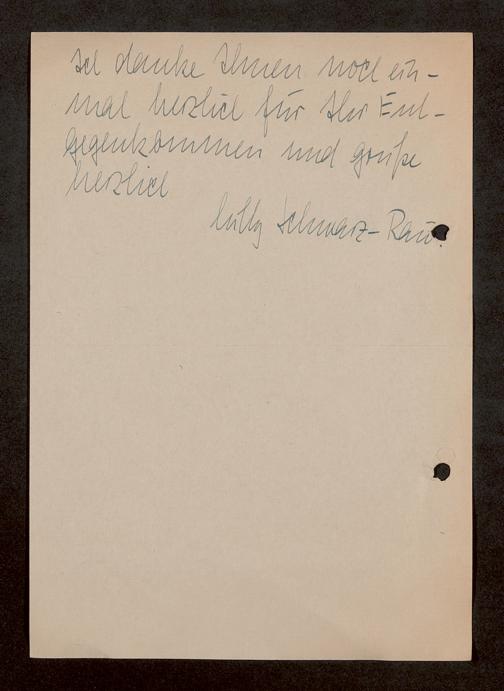 Ich danke Ihnen noch ein-
mal herzlich für Ihr Ent-
gegenkommen und grüße
herzlich
Schwarz-Rau.